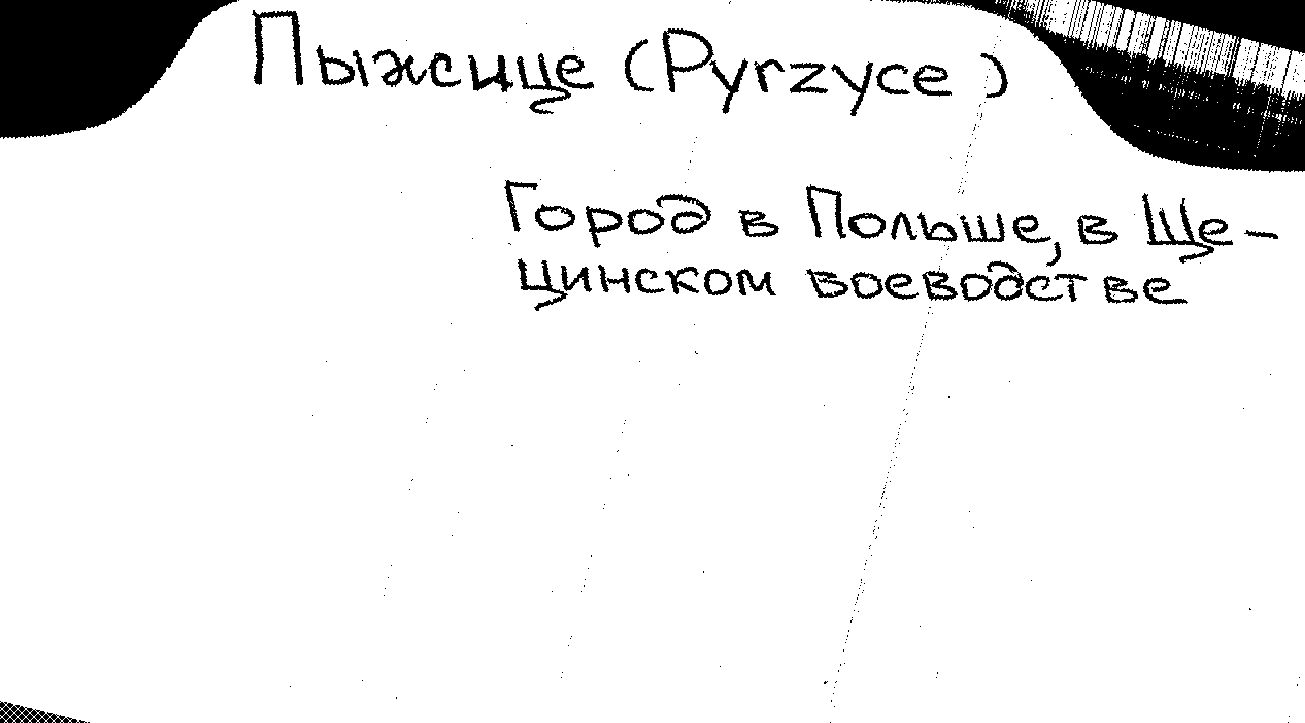 Пыжице (Pyrzyce)
Город в Польше, в Ще-
цинском воеводстве